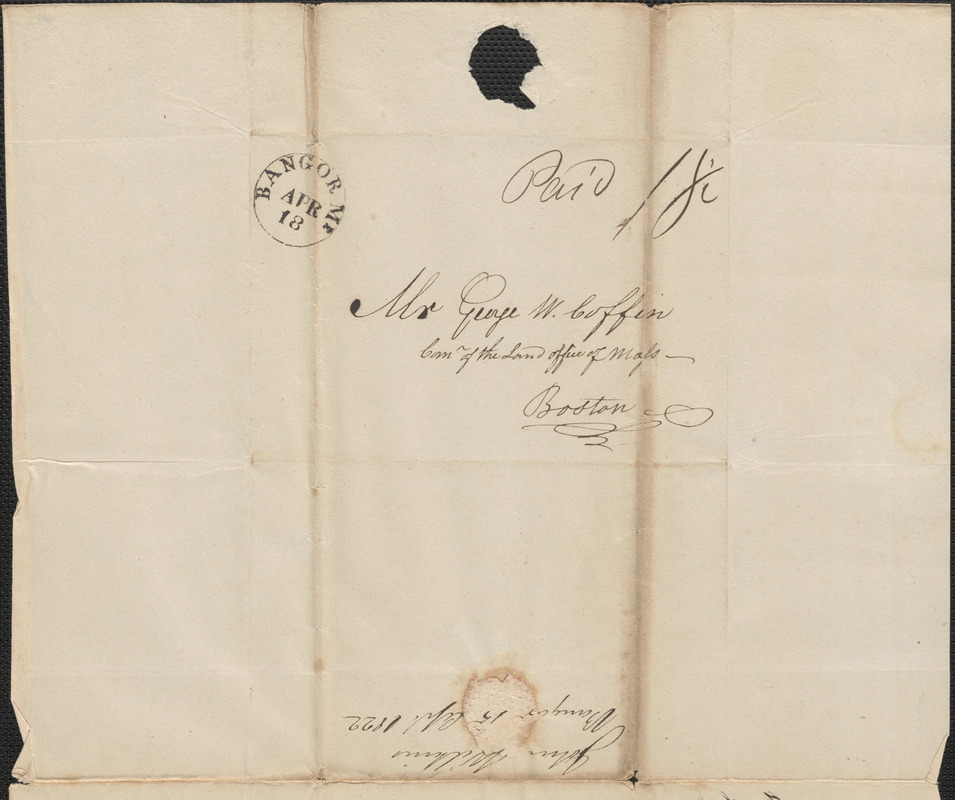 BANGOR Me
APR
18
Paid
Mr George W. Coffin
Comr of the Land office of Mass
Boston
John Wilkins
Bangor 15 Apl 1822